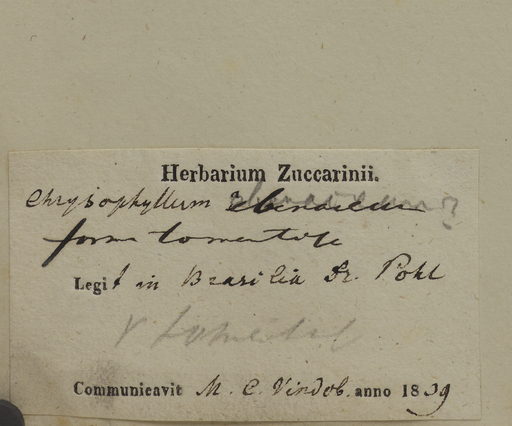 Herbarium Zuccarinii.
Chrysophyllum ebenaceum
forma tomentosa
Legit in Brasilia Dr. Pohl
Communicavit M. C. Vindob. anno 1839